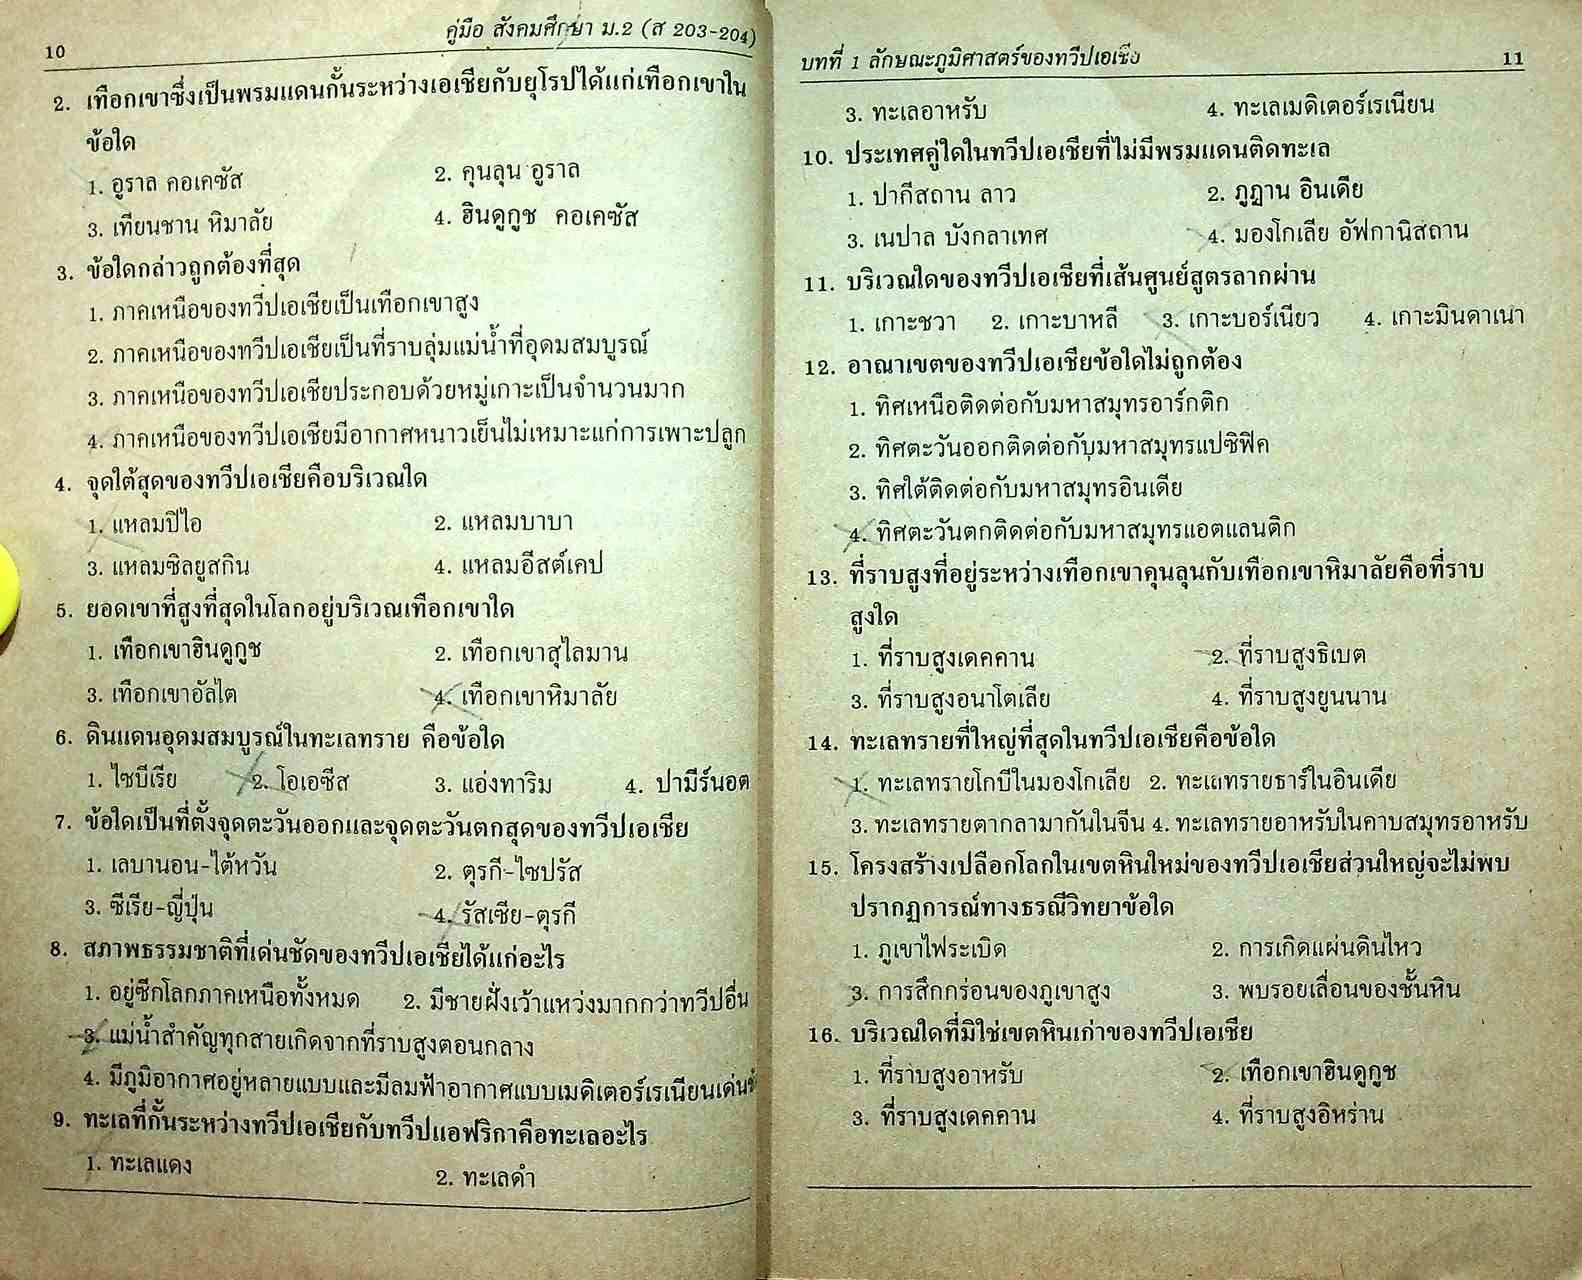 10
คู่มือ สังคมศึกษา ม.2 (ส 203-204)
2. เทือกเขาซึ่งเป็นพรมแดนกั้นระหว่างเอเชียกับยุโรปได้แก่เทือกเขาใน
ข้อใด
1. อูราล คอเคซัส 2. คุนลุน อูราล
3. เทียนชาน หิมาลัย 4. ฮินดูกูช คอเคซัส
3. ข้อใดกล่าวถูกต้องที่สุด
1. ภาคเหนือของทวีปเอเชียเป็นเทือกเขาสูง
2. ภาคเหนือของทวีปเอเชียเป็นที่ราบลุ่มแม่น้ำที่อุดมสมบูรณ์
3. ภาคเหนือของทวีปเอเชียประกอบด้วยหมู่เกาะเป็นจำนวนมาก
4. ภาคเหนือของทวีปเอเชียมีอากาศหนาวเย็นไม่เหมาะแก่การเพาะปลูก
4. จุดใต้สุดของทวีปเอเชียคือบริเวณใด
1. แหลมปิไอ 2. แหลมบาบา
3. แหลมซิลยูสกิน 4. แหลมอีสต์เคป
5. ยอดเขาที่สูงที่สุดในโลกอยู่บริเวณเทือกเขาใด
1. เทือกเขาฮินดูกูช 2. เทือกเขาสุไลมาน
3. เทือกเขาอัลไต 4. เทือกเขาหิมาลัย
6. ดินแดนอุดมสมบูรณ์ในทะเลทราย คือข้อใด
1. ไซบีเรีย 2. โอเอซีส 3. แอ่งทาริม 4. ปามีร์นอต
7. ข้อใดเป็นที่ตั้งจุดตะวันออกและจุดตะวันตกสุดของทวีปเอเชีย
1. เลบานอน-ไต้หวัน 2. ตุรกี-ไซปรัส
3. ซีเรีย-ญี่ปุ่น 4. รัสเซีย-ตุรกี
8. สภาพธรรมชาติที่เด่นชัดของทวีปเอเชียได้แก่อะไร
1. อยู่ซีกโลกภาคเหนือทั้งหมด 2. มีชายฝั่งเว้าแหว่งมากกว่าทวีปอื่น
3. แม่น้ำสำคัญทุกสายเกิดจากที่ราบสูงตอนกลาง
4. มีภูมิอากาศอยู่หลายแบบและมีลมฟ้าอากาศแบบเมดิเตอร์เรเนียนเด่น
9. ทะเลที่กั้นระหว่างทวีปเอเชียกับทวีปแอฟริกาคือทะเลอะไร
1. ทะเลแดง 2. ทะเลดำ
บทที่ 1 ลักษณะภูมิศาสตร์ของทวีปเอเชีย 11
3. ทะเลอาหรับ 4. ทะเลเมดิเตอร์เรเนียน
10. ประเทศคู่ใดในทวีปเอเชียที่ไม่มีพรมแดนติดทะเล
1. ปากีสถาน ลาว 2. ภูฏาน อินเดีย
3. เนปาล บังกลาเทศ 4. มองโกเลีย อัฟกานิสถาน
11. บริเวณใดของทวีปเอเชียที่เส้นศูนย์สูตรลากผ่าน
1. เกาะชวา 2. เกาะบาหลี 3. เกาะบอร์เนียว 4. เกาะมินดาเนา
12. อาณาเขตของทวีปเอเชียข้อใดไม่ถูกต้อง
1. ทิศเหนือติดต่อกับมหาสมุทรอาร์กติก
2. ทิศตะวันออกติดต่อกับมหาสมุทรแปซิฟิค
3. ทิศใต้ติดต่อกับมหาสมุทรอินเดีย
4. ทิศตะวันตกติดต่อกับมหาสมุทรแอตแลนติก
13. ที่ราบสูงที่อยู่ระหว่างเทือกเขาคุนลุนกับเทือกเขาหิมาลัยคือที่ราบ
สูงใด
1. ที่ราบสูงเดคคาน 2. ที่ราบสูงธิเบต
3. ที่ราบสูงอนาโตเลีย 4. ที่ราบสูงยูนนาน
14. ทะเลทรายที่ใหญ่ที่สุดในทวีปเอเชียคือข้อใด
1. ทะเลทรายโกบีในมองโกเลีย 2. ทะเลทรายธาร์ในอินเดีย
3. ทะเลทรายตากลามากันในจีน 4. ทะเลทรายอาหรับในคาบสมุทรอาหรับ
15. โครงสร้างเปลือกโลกในเขตหินใหม่ของทวีปเอเชียส่วนใหญ่จะไม่พบ
ปรากฏการณ์ทางธรณีวิทยาข้อใด
1. ภูเขาไฟระเบิด 2. การเกิดแผ่นดินไหว
3. การสึกกร่อนของภูเขาสูง 3. พบรอยเลื่อนของชั้นหิน
16. บริเวณใดที่มิใช่เขตหินเก่าของทวีปเอเชีย
1. ที่ราบสูงอาหรับ 2. เทือกเขาฮินดูกูช
3. ที่ราบสูงเดคคาน 4. ที่ราบสูงอิหร่าน